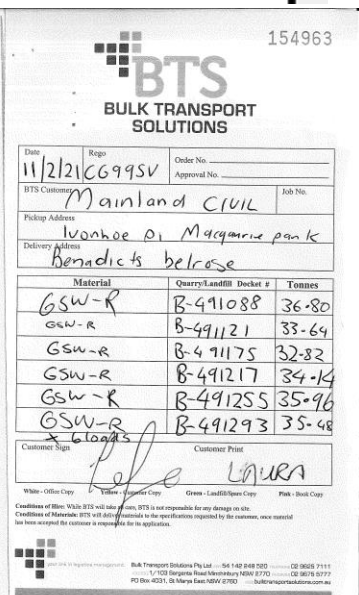 154963
BTS
BULK TRANSPORT
SOLUTIONS
Date Rego Order No.
11/2/21 CG99SV Approval No.
BTS Customer Mainland CIVIL Job No.
Pickup Address
Ivanhoe Pl Macquarie park
Delivery Address
Benadicts belrose
Material Quarry/Landfill Docket # Tonnes
GSW-R B-491088 36-80
GSW-R B-491121 33-64
GSW-R B-491175 32-82
GSW-R B-491217 34-14
GSW-R B-491255 35-96
GSW-R B-491293 35-48
x 6 loads
Customer Sign Customer Print
LAURA
White - Office Copy Yellow - Customer Copy Green - Landfill/Spare Copy Pink - Book Copy
Conditions of Hire: While BTS will take all care, BTS is not responsible for any damage on site.
Conditions of Materials: BTS will deliver materials to the specifications requested by the customer, once material
has been accepted the customer is responsible for its application.
your link in logistics management
Bulk Transport Solutions Pty Ltd 54 142 248 520 02 9625 7111
1/103 Sargents Road Minchinbury NSW 2770 02 9675 5777
PO Box 4031, St Marys East NSW 2760 bulktransportsolutions.com.au